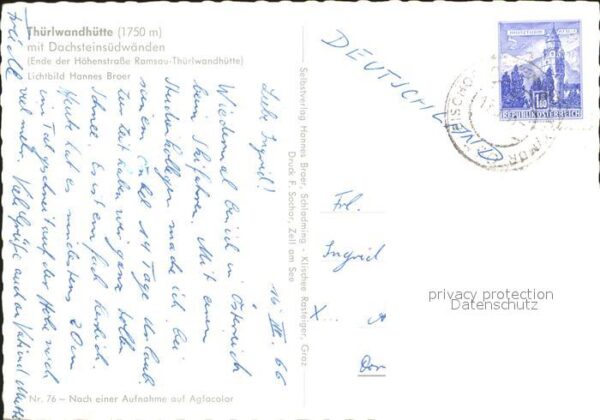 Thürlwandhütte (1750 m)
mit Dachsteinsüdwänden
(Ende der Höhenstraße Ramsau-Thürlwandhütte)
Lichtbild Hannes Broer
16. III. 66
Liebe Ingrid!
Wiedermal bin ich in Österreich
beim Skifahren. Mit einem
Studienkollegen mache ich bei
14 Tage Urlaub.
Zur Zeit haben wir ganz tollen
Schnee. Es ist einfach herrlich.
Heute hat es mindestens 20 cm
im Tal geschneit auf der Höhe noch
viel mehr. Viele Grüße auch an
Selbstverlag Hannes Broer, Schladming - Klischee Rasteiger, Graz
Druck F. Sochor, Zell am See
DEUTSCHLAND
REPUBLIK ÖSTERREICH
Frl.
Ingrid
X... A
Dor
privacy protection
Datenschutz
Nr. 76 – Nach einer Aufnahme auf Agfacolor